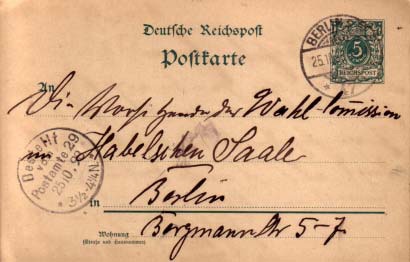 Deutsche Reichspost
Postkarte
BERLIN
25.10
5
REICHSPOST
An
Die Vorsitzende der Wahl Comission
im Habelschen Saale
Postamte 29
25 10.
3½-4¼N
in
Berlin
Bergmann Str 5-7
Wohnung
(Straße und Hausnummer)